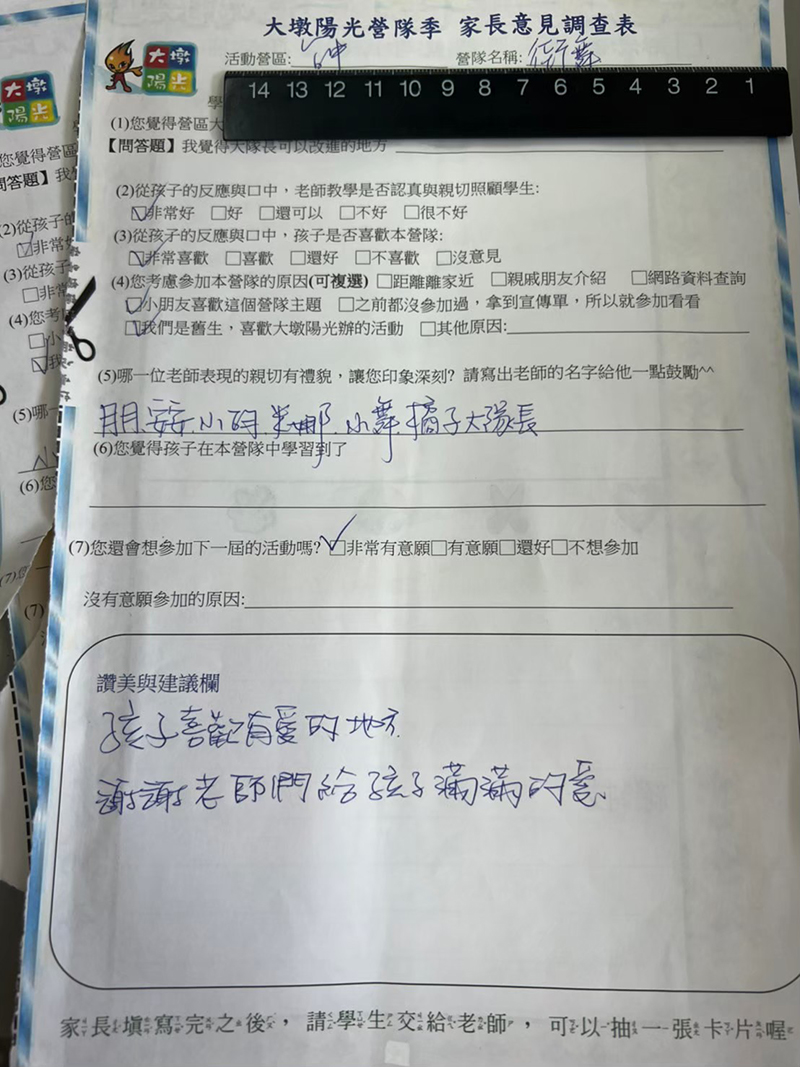 大墩陽光營隊季 家長意見調查表
大墩
陽光
活動營區: 台中 營隊名稱: 街舞
14 13 12 11 10 9 8 7 6 5 4 3 2 1
學
(1)您覺得營區大
【問答題】我覺得大隊長可以改進的地方
(2)從孩子的反應與口中，老師教學是否認真與親切照顧學生:
☑非常好 □好 □還可以 □不好 □很不好
(3)從孩子的反應與口中，孩子是否喜歡本營隊:
☑非常喜歡 □喜歡 □還好 □不喜歡 □沒意見
(4)您考慮參加本營隊的原因(可複選) □距離離家近 □親戚朋友介紹 □網路資料查詢
☑小朋友喜歡這個營隊主題 □之前都沒參加過，拿到宣傳單，所以就參加看看
☑我們是舊生，喜歡大墩陽光辦的活動 □其他原因:
(5)哪一位老師表現的親切有禮貌，讓您印象深刻? 請寫出老師的名字給他一點鼓勵^^
米娜.小舞.橘子大隊長
(6)您覺得孩子在本營隊中學習到了
(7)您還會想參加下一屆的活動嗎? ☑非常有意願□有意願□還好□不想參加
沒有意願參加的原因:
讚美與建議欄
孩子喜歡有愛的地方
謝謝老師們給孩子滿滿的愛
家長填寫完之後，請學生交給老師，可以抽一張卡片喔
大墩
陽光
您覺得營區
問答題】我
(2)從孩子的
☑非常好
(3)從孩子
□非常
(4)您考
□小
☑我
(5)哪一
(6)您
(7)您
(7)